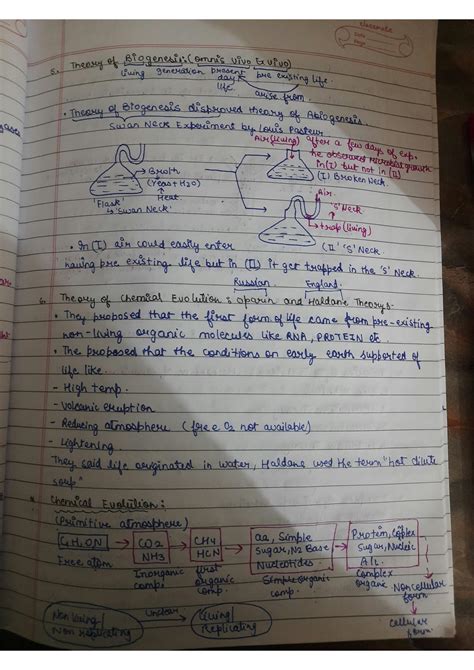 classmate
Date
Page
5. Theory of Biogenesis: (omnis vivo Ex vivo)
living generation present day life. pre existing life.
arise from.
• Theory of Biogenesis disproved theory of Abiogenesis.
Swan Neck Experiment by Louis Pasteur
Air (living) after a few days of exp.
he observed microbial growth
in (I) but not in (II)
→ Broth
(Yeas + H2O)
↑ Heat
'Flask'
↳ 'Swan Neck'
(I) Broken Neck.
Air.
'S' Neck
→ trap (living)
(II) 'S' Neck.
• In (I) air could easily enter
having pre existing life but in (II) it get trapped in the 'S' Neck.
Russian England.
6. Theory of Chemical Evolution : Oparin and Haldane Theory:-
• They proposed that the first form of life came from pre-existing
non-living organic molecules like RNA, PROTEIN etc.
• The proposed that the conditions on early earth supported of
life like..
- High temp.
- Volcanic eruption
- Reducing atmosphere (free O2 not available)
- Lightening.
They said life originated in water, Haldane used the term "hot dilute
soup"
Chemical Evolution:
(Primitive atmosphere)
C,H,O,N → CO2 NH3 → CH4 HCN → aa, Simple Sugar, N2 Base Nucleotides. → Protein, Complex Sugar, Nucleic A/c.
Free atom
Inorganic comp.
first organic comp.
Simple organic comp.
Complex organic
Non cellular form
cellular form
Non living / Non replicating
Unclear
Living / Replicating